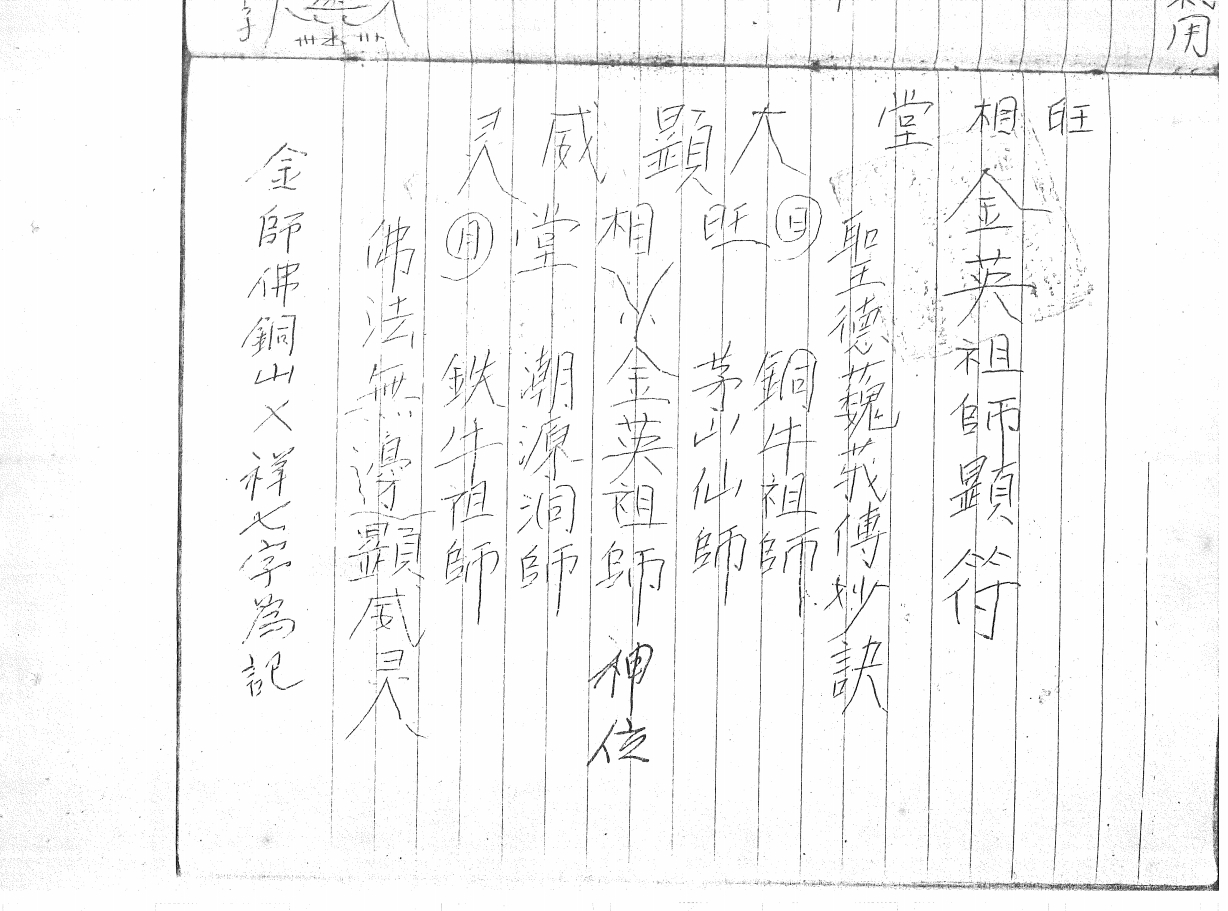 用
旺相堂
金英祖師顯符
聖德巍莪傳妙訣
大顯威灵
日
銅牛祖師
旺
茅山仙師
相
金英祖師神位
堂
潮源洞師
月
鉄牛祖師
佛法無邊顯威灵
金師佛銅山乂祥七字為記
字